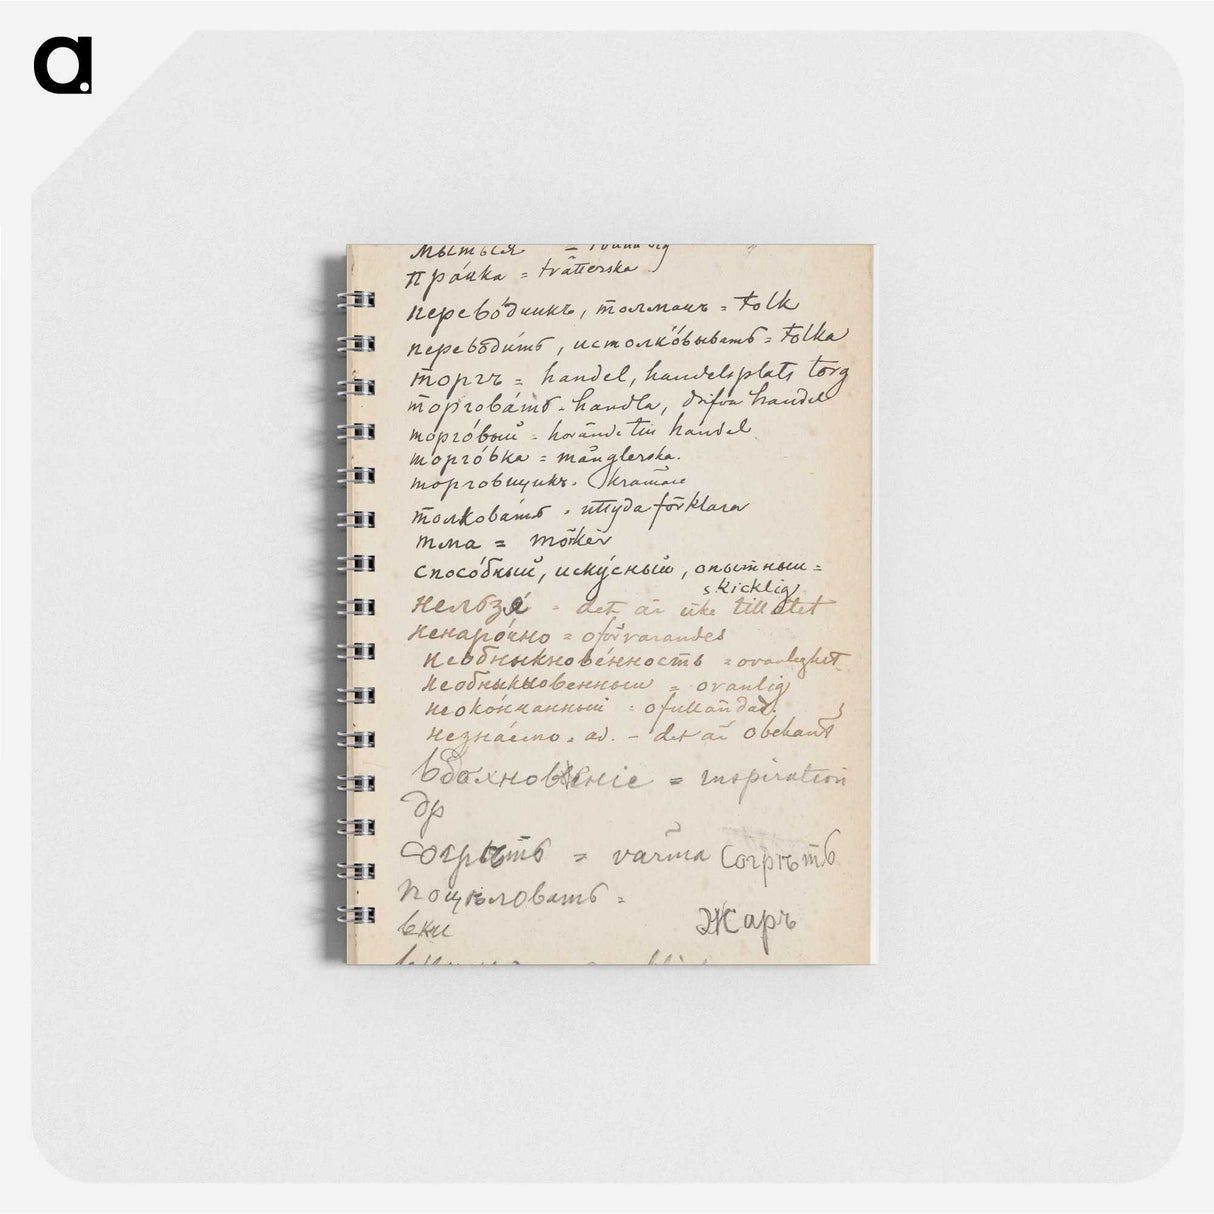 a.
мыться = tvätta sig
прáчка = tvätterska
перевóдчикъ, толмачъ = tolk
переводи́ть, истолкóвывать = tolka
торгъ = handel, handelsplats torg
торговáть - handla, drifva handel
торгóвый - hörande till handel
торгóвка = månglerska.
торговщикъ. krämare
толковáть . uttyda förklara
тма = mörker
спосóбный, искýсный, опытный =
skicklig
нельзя́ - det är icke tillåtet
ненарóчно = oförvarandes
необыкновéнность = ovanlighet
необыкновенный = ovanlig
неокóнчанный = ofulländad.
незнáемо = av. - det är obekant
вдохновеніе = inspiration
др
согрѣть = värma Согрѣть
поцѣловать =
вки Жаръ